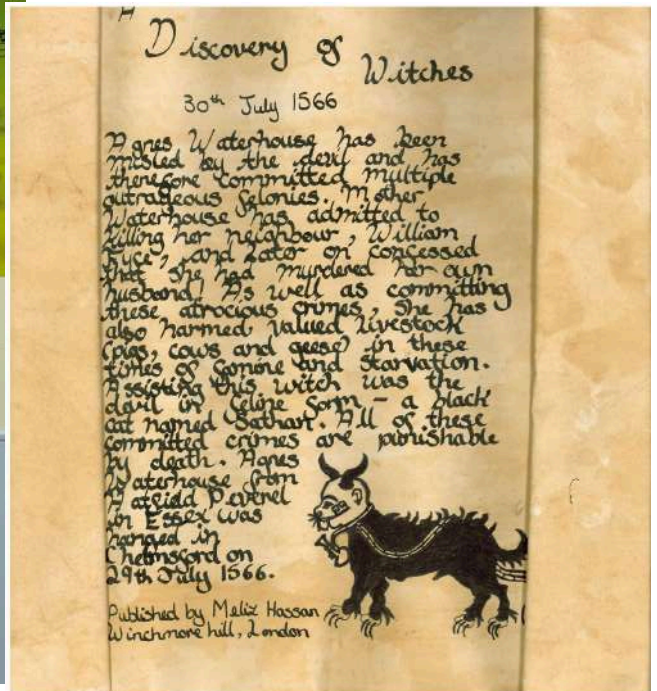 A
Discovery of
Witches
30th July 1566
Agnes Waterhouse has been
misled by the devil and has
therefore committed multiple
outrageous felonies. Mother
Waterhouse has admitted to
killing her neighbour, William
Fyce, and later on confessed
that she had murdered her own
husband! As well as committing
these atrocious crimes, she has
also harmed valued livestock
(pigs, cows and geese) in these
times of famine and starvation.
Assisting this witch was the
devil in feline form – a black
cat named Sathan. All of these
committed crimes are punishable
by death. Agnes
Waterhouse from
Hatfield Peverel
in Essex was
hanged in
Chelmsford on
29th July 1566.
Published by Meliz Hassan
Winchmore hill, London